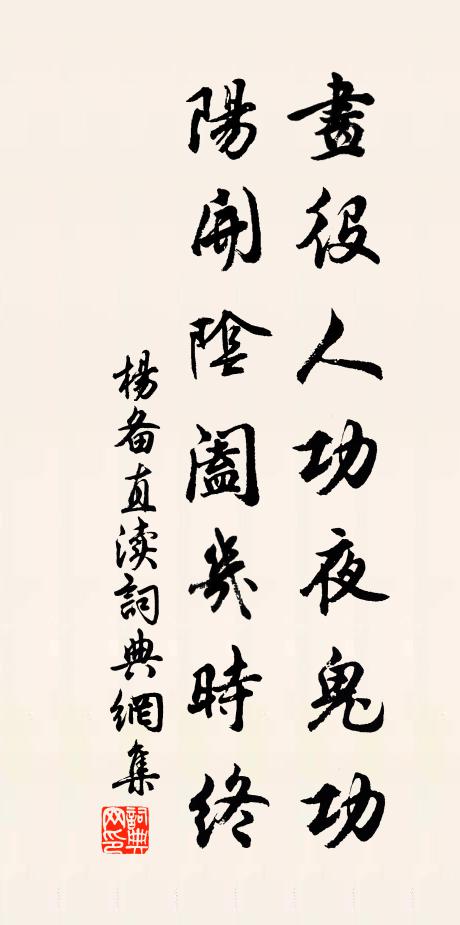 晝役人功夜鬼功
陽開陰闔幾時終
楊备直渎詞典網集
詞典
网印